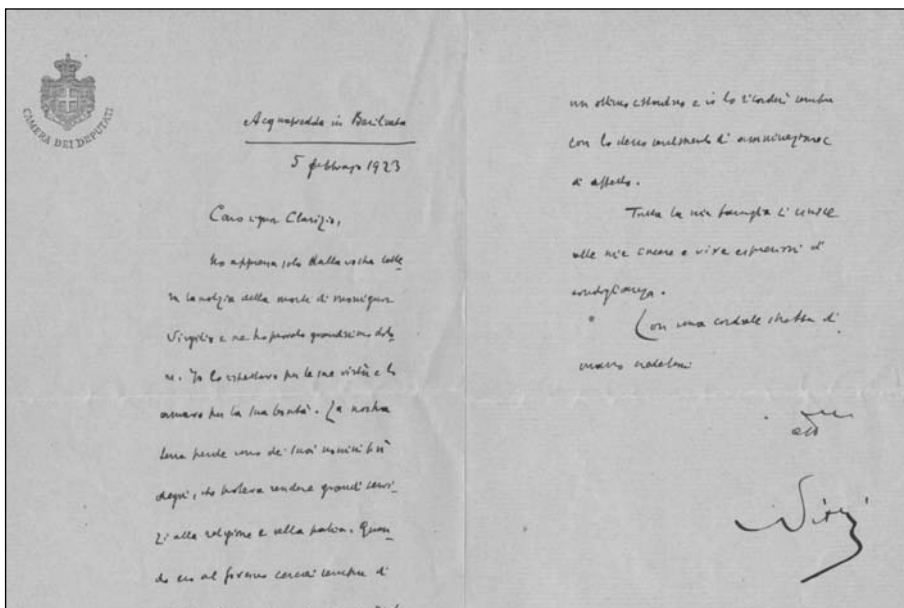 CAMERA DEI DEPUTATI
Acquafredda in Basilicata
5 febbraio 1923
Caro signor Clarizio,
ho appreso solo dalla vostra lette-
ra la notizia della morte di monsignor
Virgilio e ne ho provato grandissimo dolo-
re. Io lo rispettavo per le sue virtù e lo
amavo per la sua bontà. La nostra
terra perde uno dei suoi uomini più
degni, che poteva rendere grandi servi-
zi alla religione e alla patria. Quan-
do ero al governo cercai sempre di
un ottimo e io lo ricorderò sempre
con lo stesso sentimento di ammirazione e
di affetto.
Tutta la mia famiglia si unisce
alle mie sincere e vive espressioni di
condoglianza.
Con una cordiale stretta di
mano credetemi
Nitti